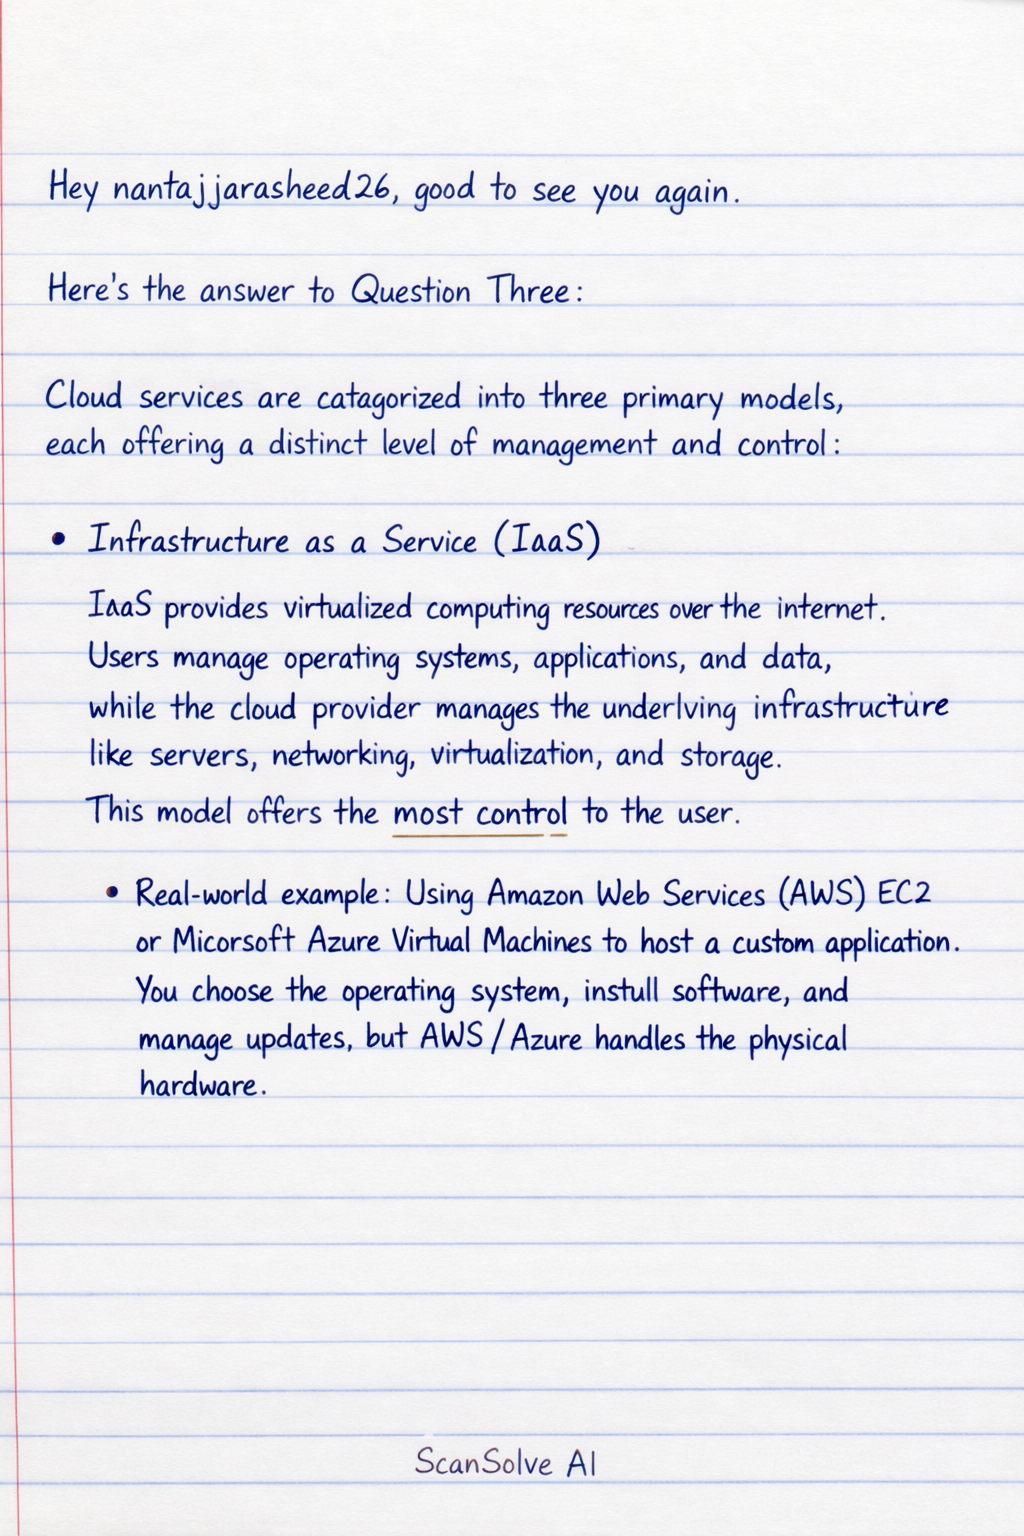 Hey nantajjarasheed26, good to see you again.
Here's the answer to Question Three:
Cloud services are catagorized into three primary models,
each offering a distinct level of management and control:
• Infrastructure as a Service (IaaS)
IaaS provides virtualized computing resources over the internet.
Users manage operating systems, applications, and data,
while the cloud provider manages the underlving infrastructure
like servers, networking, virtualization, and storage.
This model offers the most control to the user.
• Real-world example: Using Amazon Web Services (AWS) EC2
or Micorsoft Azure Virtual Machines to host a custom application.
You choose the operating system, instull software, and
manage updates, but AWS/Azure handles the physical
hardware.
ScanSolve AI